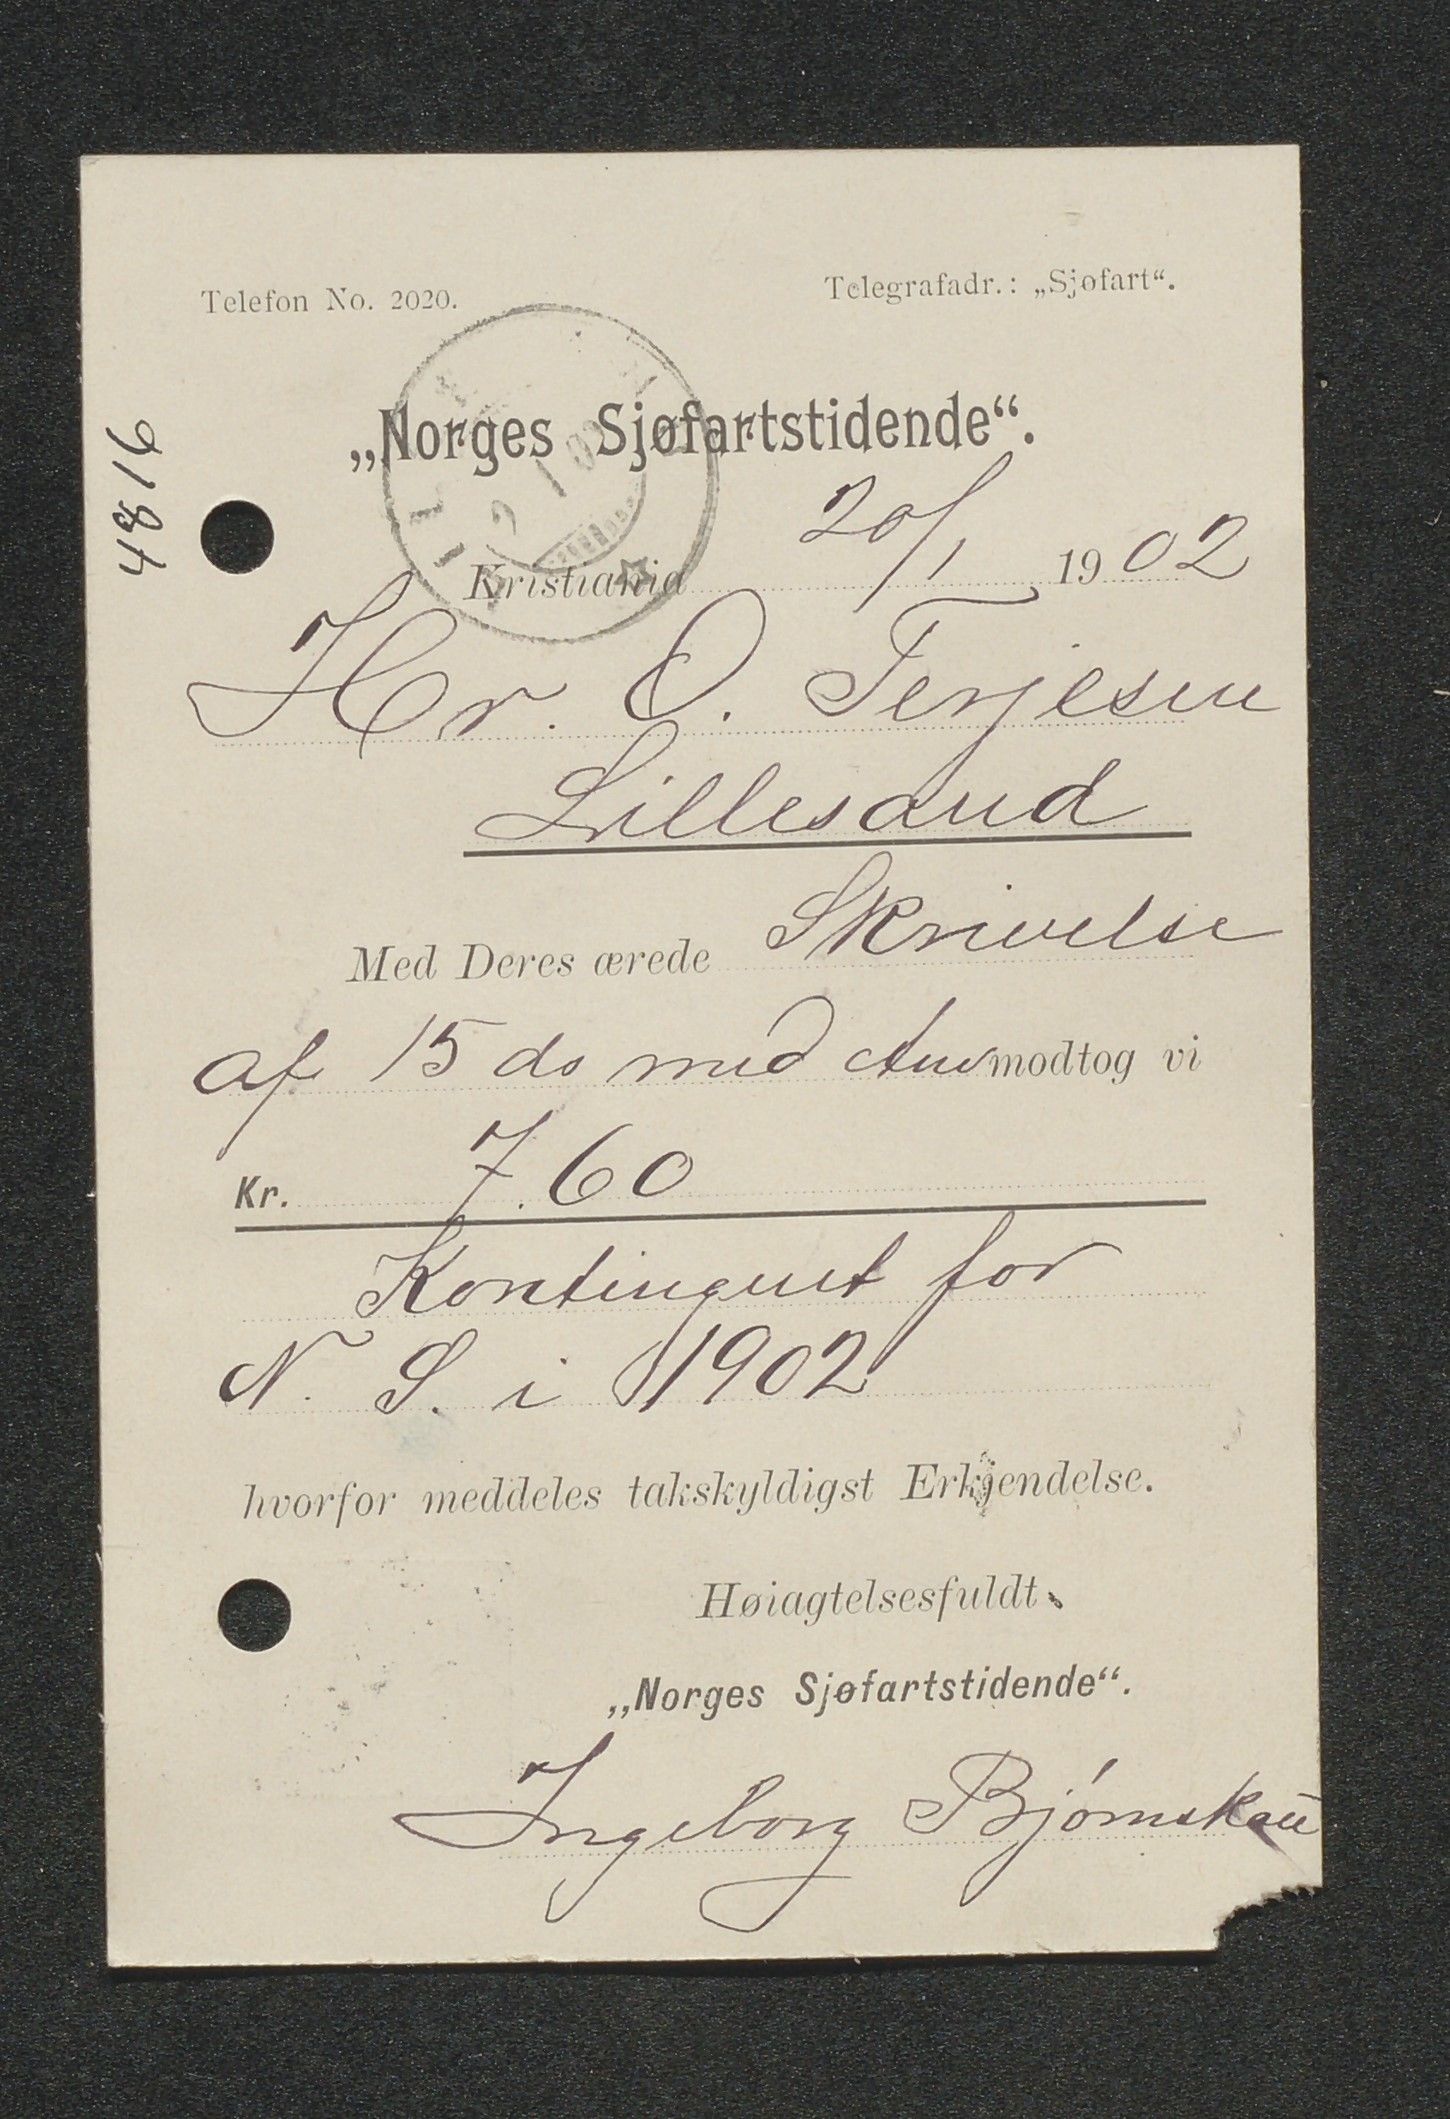 Telefon No. 2020.
Telegrafadr.: „Sjøfart“.
„Norges Sjøfartstidende“.
4816
Kristiania 20/1 1902
Hr. O. Terjesen
Lillesand
Med Deres ærede Skrivelse
af 15 ds med modtog vi
Kr. 7.60
Kontingent for
N. S. i 1902
hvorfor meddeles takskyldigst Erkjendelse.
Høiagtelsesfuldt
„Norges Sjøfartstidende“.
Ingeborg Bjørnskau